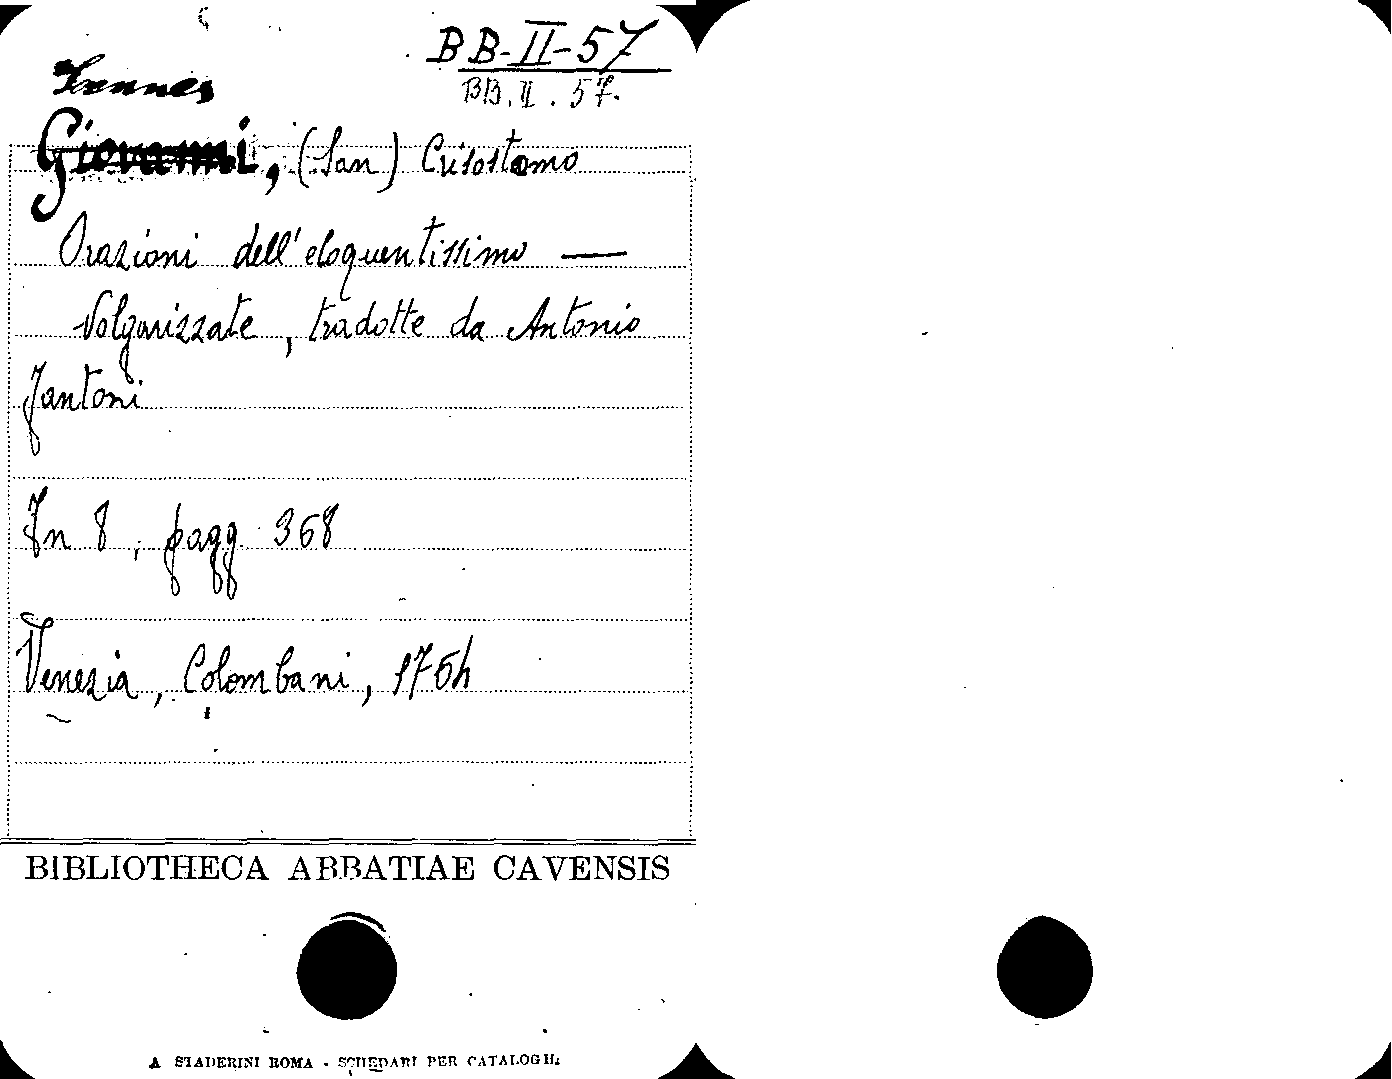 BB-II-57
BB.II.57.
Joannes
Giovanni, (San) Crisostomo
Orazioni dell'eloquentissimo —
Volgarizzate, tradotte da Antonio
Jantoni
In 8, pagg. 368
Venezia, Colombani, 1764
BIBLIOTHECA ABBATIAE CAVENSIS
A STADERINI ROMA - SCHEDARI PER CATALOGHI